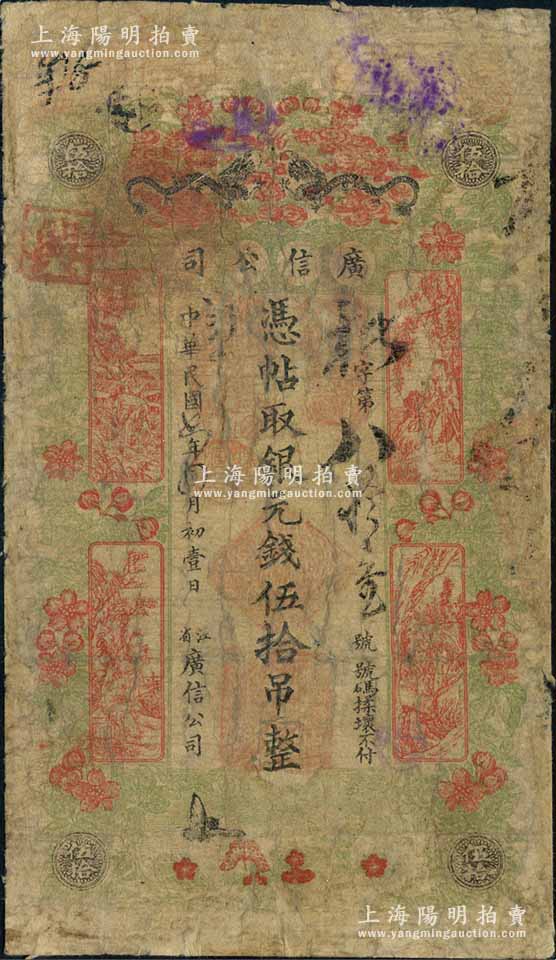 上海陽明拍賣
www.yangmingauction.com
伍拾
伍拾
廣信公司
字第八
號
號碼揉壞不付
憑帖取銀元錢伍拾吊整
中華民國
年
月初壹日
江省
廣信公司
上海陽明拍賣
www.yangmingauction.com
伍拾
伍拾
上海陽明拍賣
www.yangmingauction.com